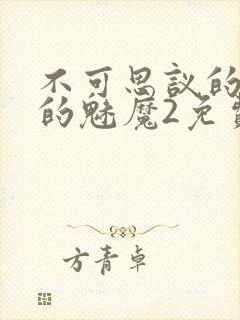 不可思议的
的魅魔2免
方青卓